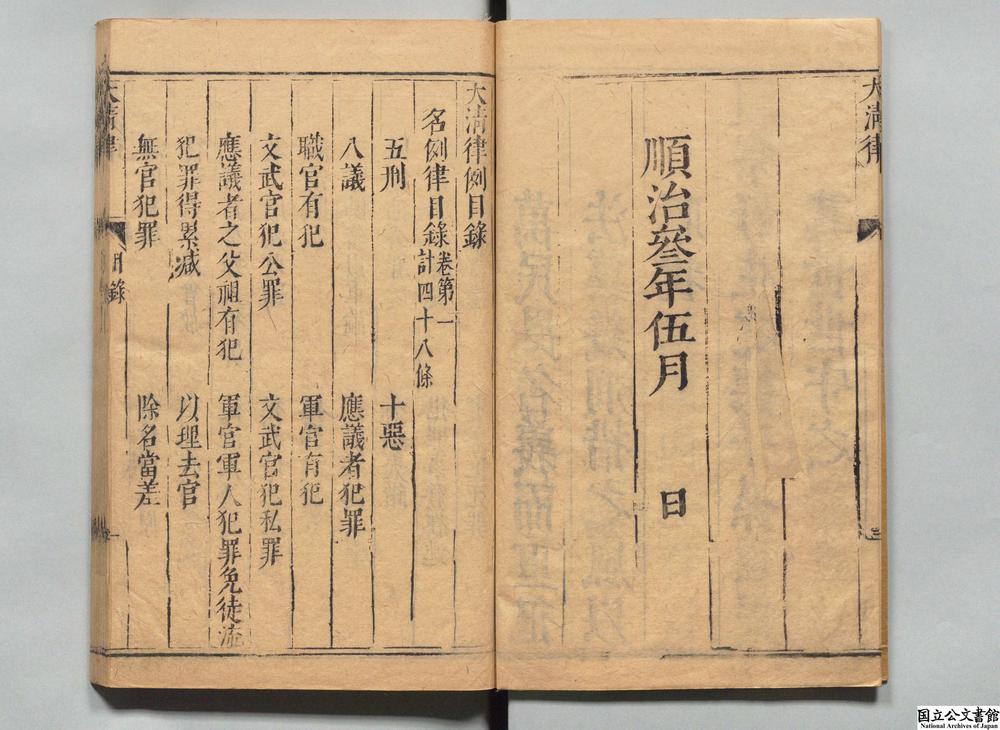 大清律
順治叁年伍月　日
大清律例目錄
名例律目錄 卷第一 計四十八條
五刑　十惡
八議　應議者犯罪
職官有犯　軍官有犯
文武官犯公罪　文武官犯私罪
應議者之父祖有犯　軍官軍人犯罪免徒流
犯罪得累减　以理去官
無官犯罪　除名當差
大清律　目錄　一
国立公文書館
National Archives of Japan